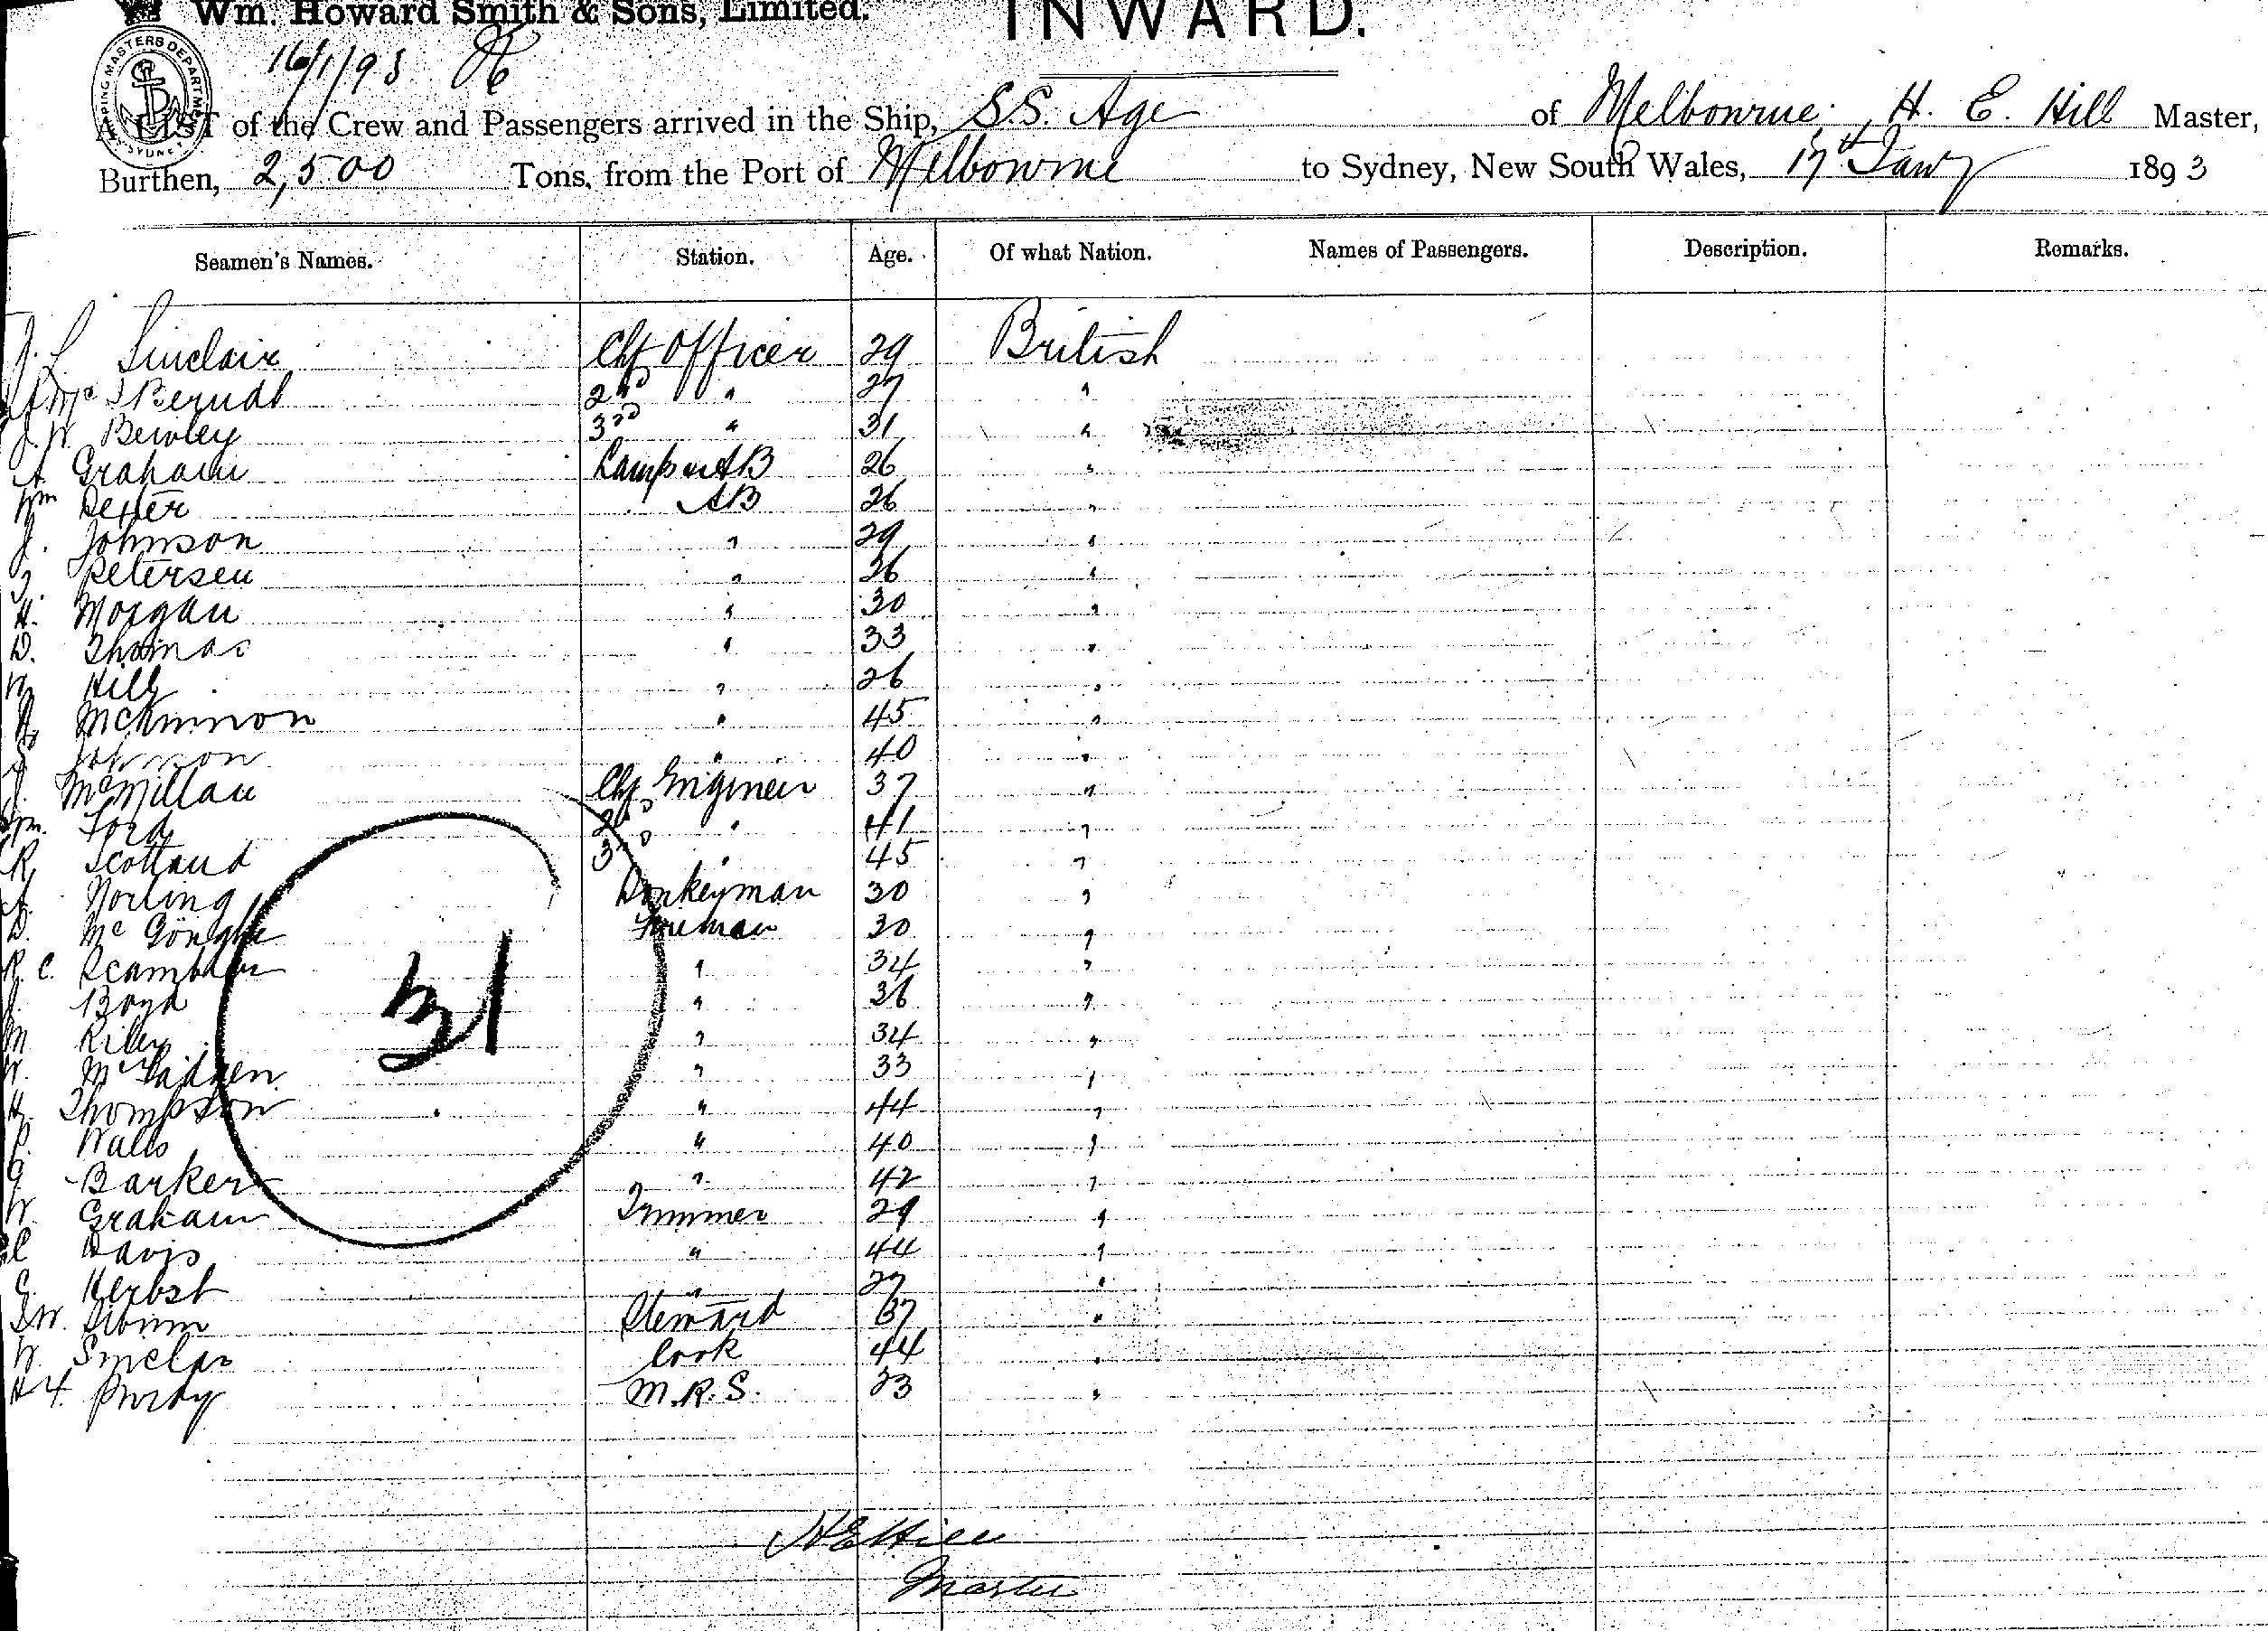 Wm. Howard Smith & Sons, Limited.
INWARD.
SHIPPING MASTERS DEPARTMENT SYDNEY
16/1/93
A LIST of the Crew and Passengers arrived in the Ship, S.S. Age of Melbourne, H. E. Hill Master,
Burthen, 2,500 Tons, from the Port of Melbourne to Sydney, New South Wales, 17th Jany 1893
Seamen's Names. Station. Age. Of what Nation. Names of Passengers. Description. Remarks.
J. L. Sinclair Chf Officer 29 British
Berndt 2nd " 27 "
J. W. Bewley 3rd " 31 "
A Graham Lamps & AB 26 "
Wm Dexter AB 26 "
J. Johnson " 29 "
Petersen " 36 "
H. Morgan " 30 "
D. Thomas " 33 "
Hill " 26 "
McKinnon " 45 "
Johnson " 40 "
J. McMillan Chf Engineer 37 "
Wm. Ford 2nd " 41 "
R. Scotland 3rd " 45 "
A. Norling Donkeyman 30 "
D. Mc Fireman 30 "
R. C. " 34 "
J. Boyd " 36 "
M Riley " 34 "
W. McFadzen " 33 "
H. Thompson " 44 "
P. Walls " 40 "
G Barker " 42 "
W. Graham Trimmer 29 "
C Davis " 44 "
C. Herbst " 27 "
Steward 37 "
W. Sinclair Cook 44 "
H. F. Purdy M.R.S. 23 "
31
H E Hill
Master